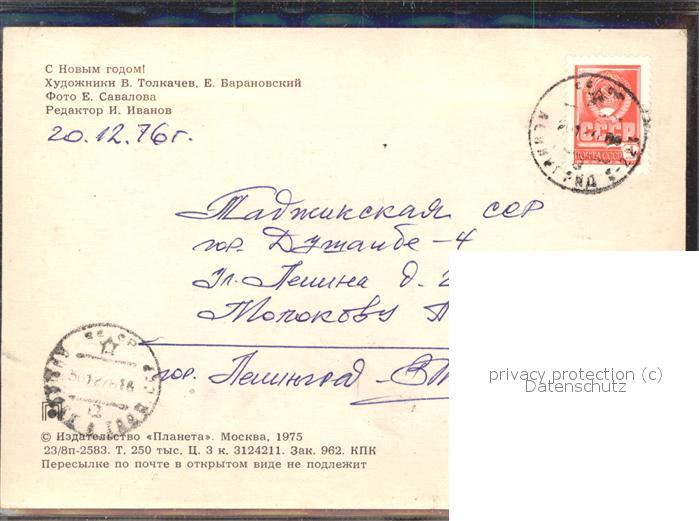 С Новым годом!
Художники В. Толкачев, Е. Барановский
Фото Е. Савалова
Редактор И. Иванов
20.12.76 г.
СССР
ПОЧТА СССР
Таджикская ССР
гор. Душанбе-4
Ул. Ленина д. 2
Молокову
гор. Ленинград
privacy protection (c)
Datenschutz
© Издательство «Планета». Москва, 1975
23/8п-2583. Т. 250 тыс. Ц. 3 к. 3124211. Зак. 962. КПК
Пересылке по почте в открытом виде не подлежит